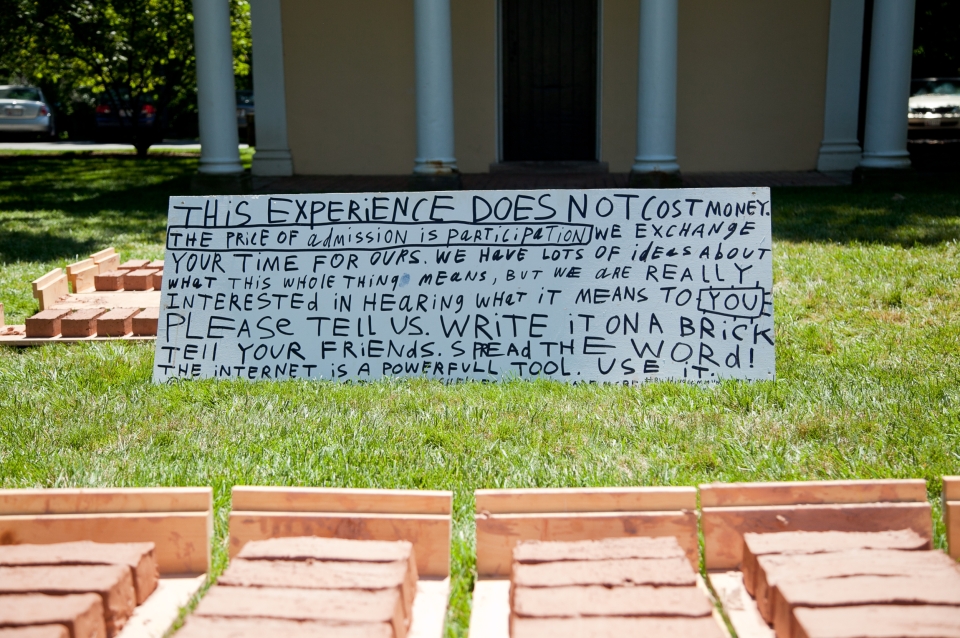 THIS EXPERIENCE DOES NOT COST MONEY.
THE PRICE OF admission is participation WE EXCHANGE
YOUR TIME FOR OURS. WE HAVE LOTS OF ideas ABOUT
WHAT THIS WHOLE THING MEANS, BUT WE are REALLY
INTERESTEd iN HEARING WHAT iT MEANS TO YOU
PLEASe TELL US. WRITE iT ON A BRiCK
TELL YOUR FRiENdS. SPREAD THE WORd!
THE iNTERNET is A POWERFULL TOOL. USE iT.